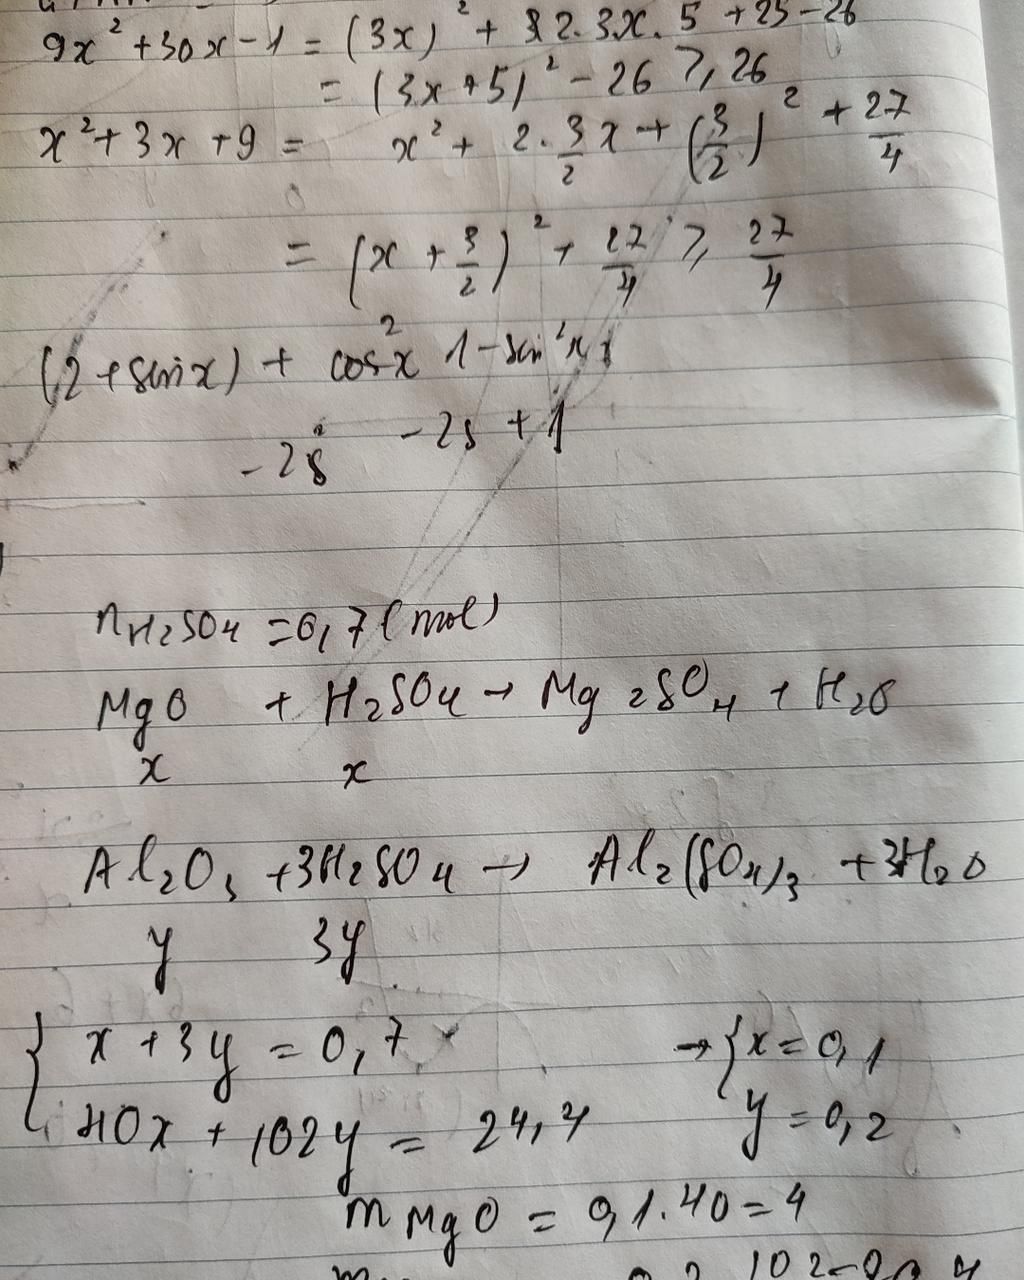 9x² + 30x - 1 = (3x)² + 2.3x.5 + 25 - 26
= (3x + 5)² - 26 ⩾ 26
x² + 3x + 9 = x² + 2.3/2 x + (3/2)² + 27/4
= (x + 3/2)² + 27/4 ⩾ 27/4
(2 + sinx) + cos²x 1 - sin²x
- 2s² - 2s + 1
nH2SO4 = 0,7 (mol)
MgO + H2SO4 → Mg2SO4 + H2O
x x
Al2O3 + 3H2SO4 → Al2(SO4)3 + 3H2O
y 3y
{ x + 3y = 0,7 → { x = 0,1
40x + 102y = 24,4 y = 0,2
mMgO = 0,1.40 = 4